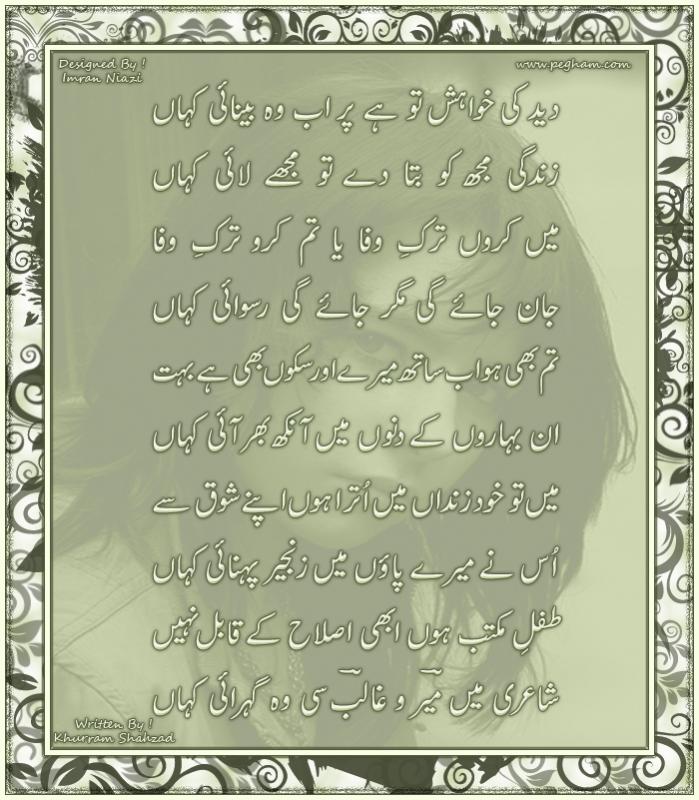 Designed By !
Imran Niazi
www.pegham.com
دید کی خواہش تو ہے پر اب وہ بینائی کہاں
زندگی مجھ کو بتا دے تو مجھے لائی کہاں
میں کروں ترکِ وفا یا تم کرو ترکِ وفا
جان جائے گی مگر جائے گی رسوائی کہاں
تم بھی ہو اب ساتھ میرے اور سکوں بھی ہے بہت
ان بہاروں کے دنوں میں آنکھ بھر آئی کہاں
میں تو خود زنداں میں اُترا ہوں اپنے شوق سے
اُس نے میرے پاؤں میں زنجیر پہنائی کہاں
طفلِ مکتب ہوں ابھی اصلاح کے قابل نہیں
شاعری میں میر و غالب سی وہ گہرائی کہاں
Written By !
Khurram Shahzad